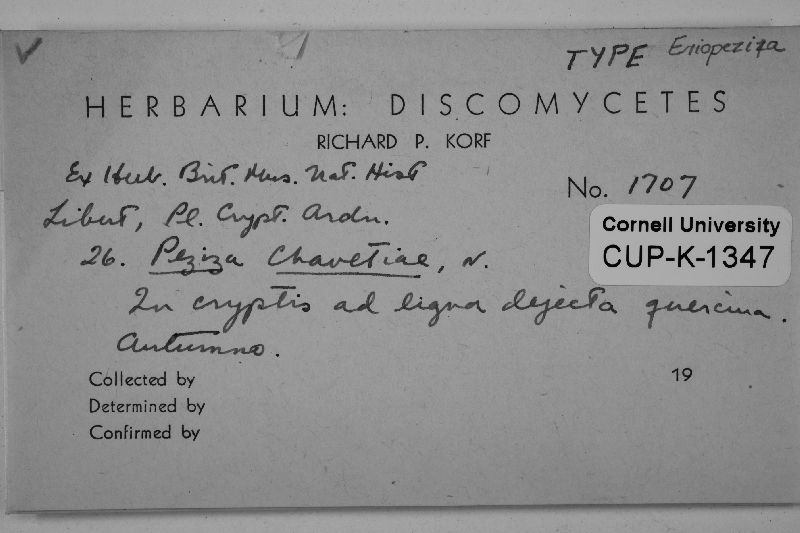 ✓ TYPE Eriopeziza
HERBARIUM: DISCOMYCETES
RICHARD P. KORF
Ex Herb. Brit. Mus. Nat. Hist
No. 1707
Libert, Pl. Crypt. Ardu.
Cornell University
CUP-K-1347
26. Peziza Chavetiae, N.
In cryptis ad ligna dejecta quercina.
Autumno.
Collected by
19
Determined by
Confirmed by